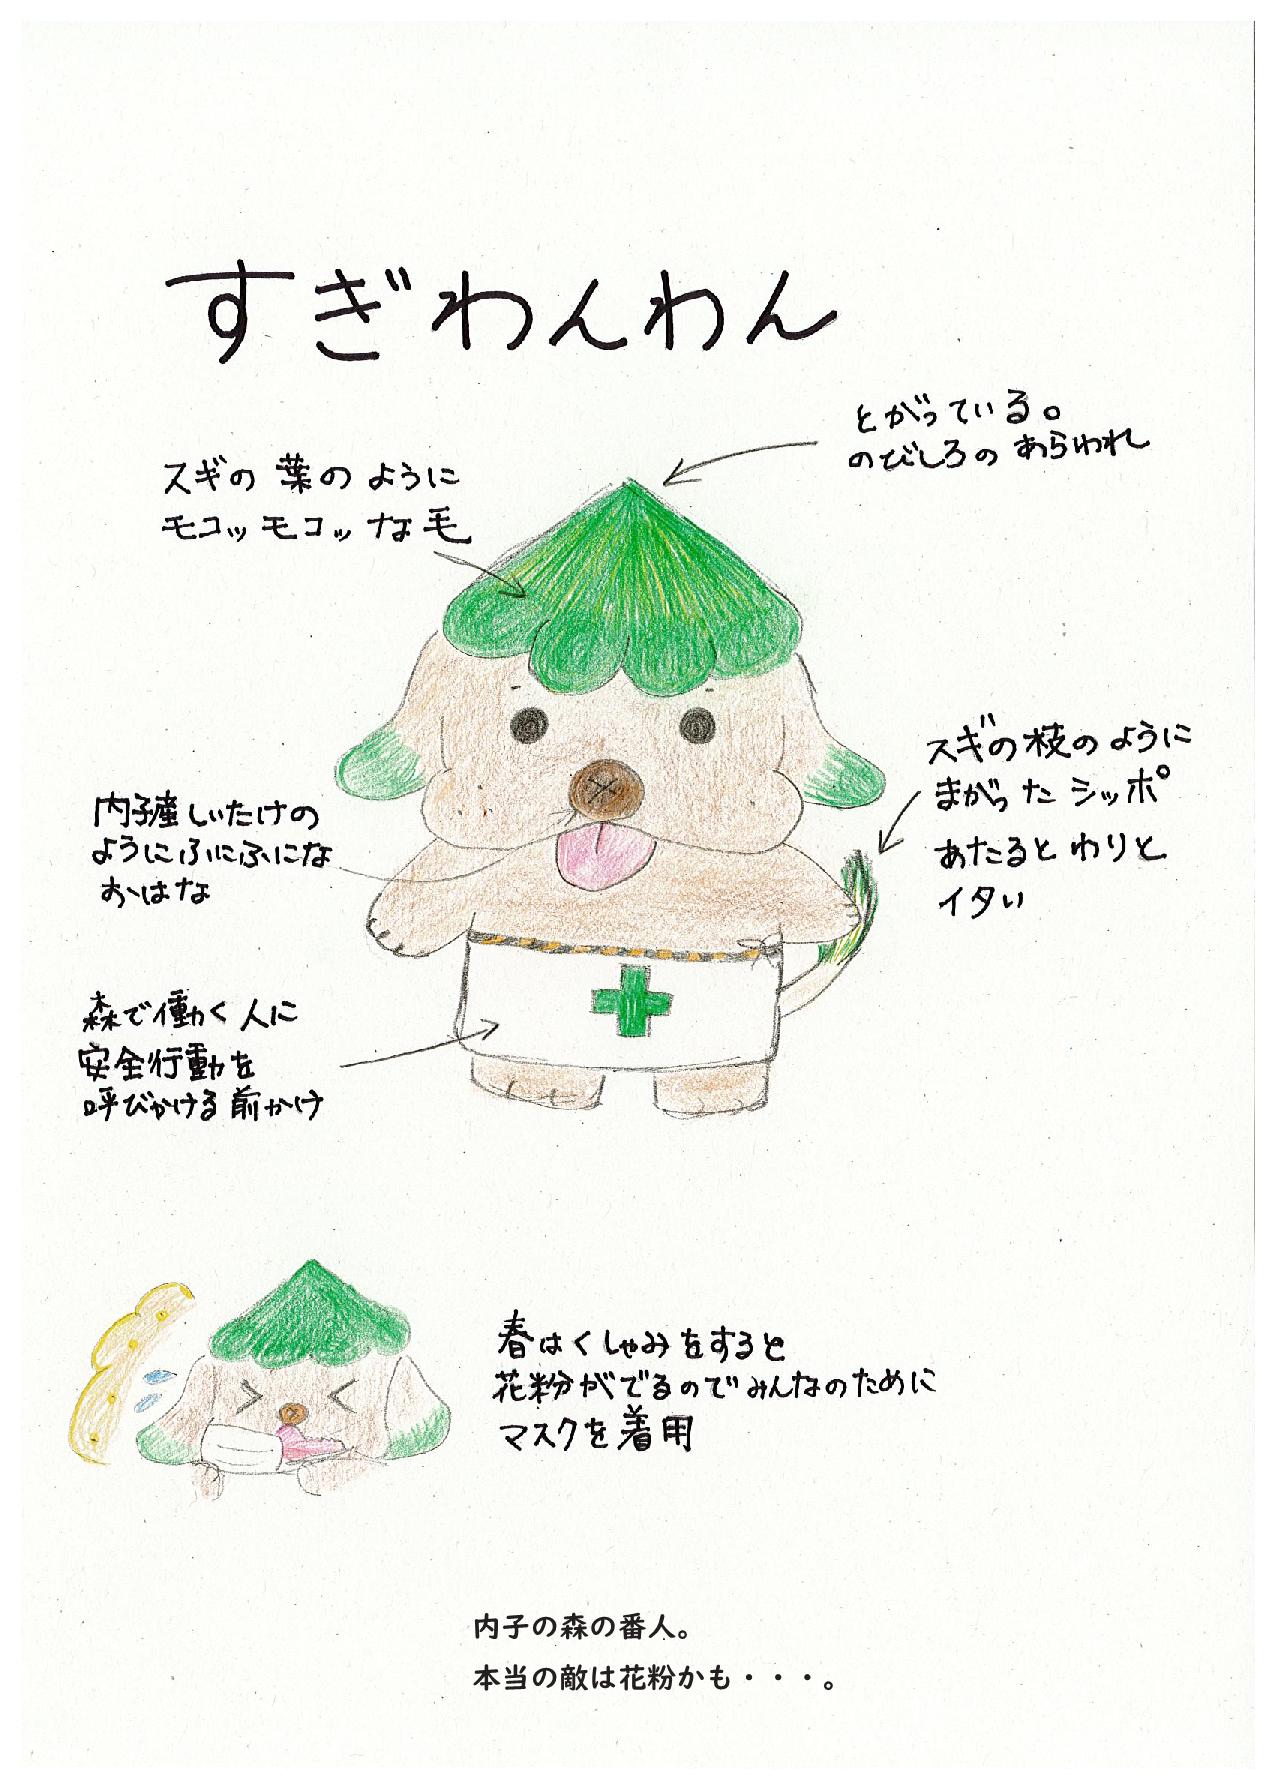 すぎわんわん
とがっている。
のびしろのあらわれ
スギの葉のように
モコッモコッな毛
スギの枝のように
まがったシッポ
あたるとわりと
イタい
内子産しいたけの
ようにふにふにな
おはな
森で働く人に
安全行動を
呼びかける前かけ
春はくしゃみをすると
花粉がでるのでみんなのために
マスクを着用
内子の森の番人。
本当の敵は花粉かも・・・。